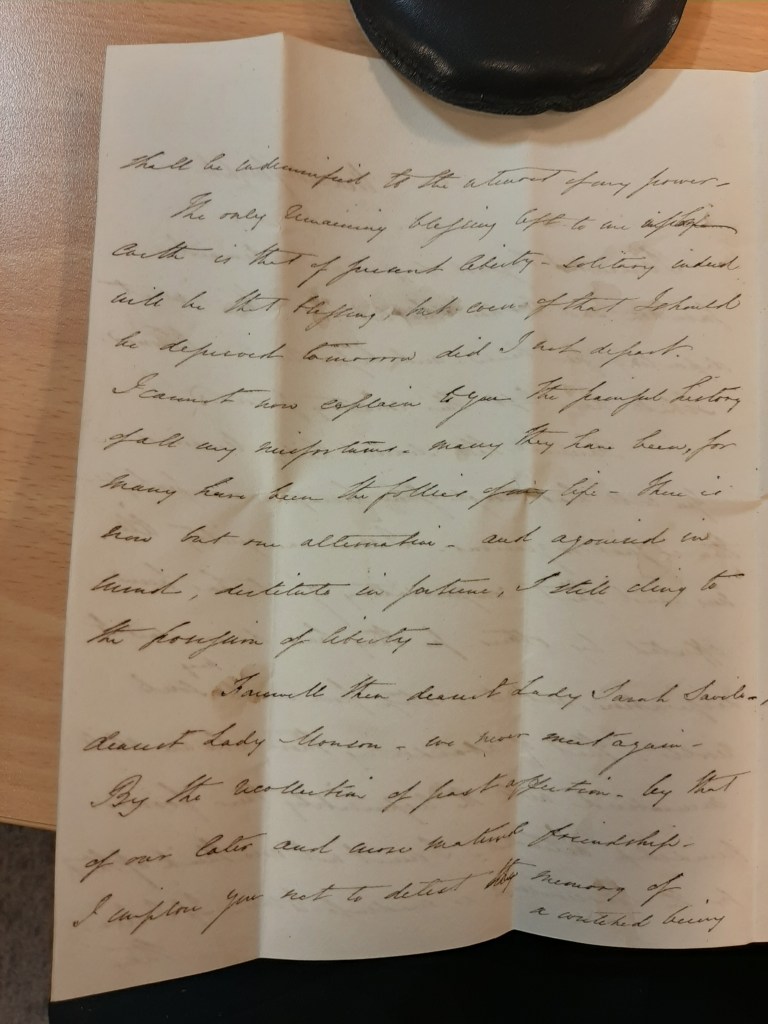 shall be indemnified to the utmost of my power -
The only remaining blessing left to me
earth is that of present liberty - solitary indeed
will be that blessing, but even of that I should
be deprived tomorrow did I not depart.
I cannot now explain to you the painful history
of all my misfortunes - many they have been, for
many have been the follies of my life - there is
now but one alternative - and agonised in
mind, destitute in fortune, I still cling to
the possession of liberty -
Farewell then dearest Lady Sarah Savile -,
dearest Lady Monson - we never meet again -
By the recollection of past affection - by that
of our later and more mature friendship -
I implore you not to detest the memory of
a wretched being